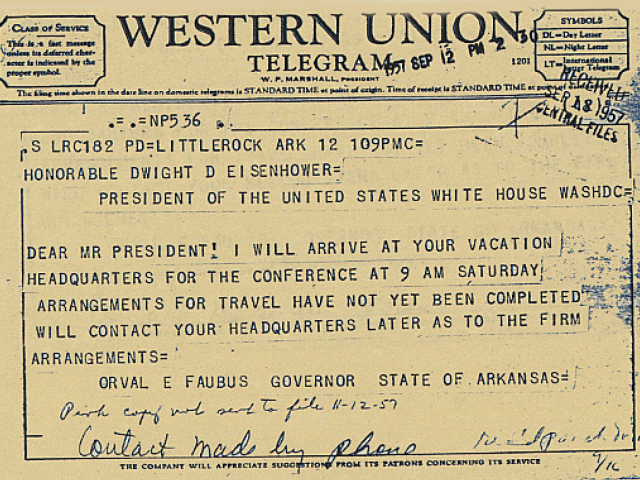 CLASS OF SERVICE
This is a fast message
unless its deferred char-
acter is indicated by the
proper symbol.
WESTERN UNION
TELEGRAM
W. P. MARSHALL, PRESIDENT
1201
SYMBOLS
DL=Day Letter
NL=Night Letter
LT=International Letter Telegram
1957 SEP 12 PM 2 30
RECEIVED
SEP 18 1957
CENTRAL FILES
The filing time shown in the date line on domestic telegrams is STANDARD TIME at point of origin. Time of receipt is STANDARD TIME at point of
NP536
S LRC182 PD=LITTLEROCK ARK 12 109PMC=
HONORABLE DWIGHT D EISENHOWER=
PRESIDENT OF THE UNITED STATES WHITE HOUSE WASHDC=
DEAR MR PRESIDENT! I WILL ARRIVE AT YOUR VACATION
HEADQUARTERS FOR THE CONFERENCE AT 9 AM SATURDAY
ARRANGEMENTS FOR TRAVEL HAVE NOT YET BEEN COMPLETED
WILL CONTACT YOUR HEADQUARTERS LATER AS TO THE FIRM
ARRANGEMENTS=
ORVAL E FAUBUS GOVERNOR STATE OF ARKANSAS=
Pink copy not sent to file 11-12-57
Contact made by phone
THE COMPANY WILL APPRECIATE SUGGESTIONS FROM ITS PATRONS CONCERNING ITS SERVICE